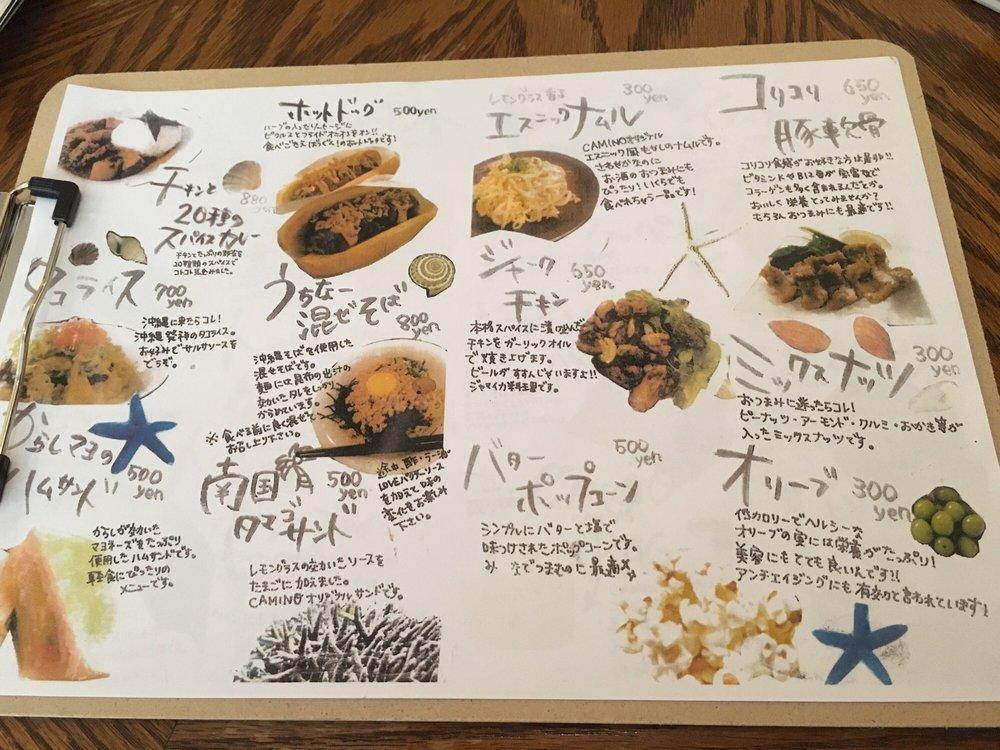 チキンと
20種の
スパイスカレー
880
チキンとたっぷりの野菜を
20種類のスパイスで
コトコト煮込みました。
タコライス
700
yen
沖縄に来たらコレ!
沖縄発祥のタコライス。
お好みでサルサソースを
どうぞ。
からしマヨの
ハムサンド
500
yen
からしが効いた
マヨネーズをたっぷり
使用したハムサンドです。
軽食にぴったりの
メニューです。
ホットドッグ 500yen
ハーブの入ったソーセージに
ピクルスとフライドオニオンをオン!!
食べごたえばつぐん!のホットドッグです!
うちなー
混ぜそば
800
yen
沖縄そばを使用した
混ぜそばです。
麺には昆布の出汁の
効いたタレをしっかり
からめています。
※食べる前に良く混ぜて
お召し上り下さい。
途中、酢・ラー油
LOVEパクチーソース
を加えて味の
変化もお楽しみ
下さい。
南国
タマゴサンド
500
yen
レモングラスの効いたソースを
たまごに加えました。
CAMINOオリジナルサンドです。
レモングラス香る
エスニックナムル
300
yen
CAMINOオリジナル
エスニック風もやしのナムルです。
お酒のおつまみにも
ぴったり!いくらでも
食べれちゃう一品です!
ジャーク
チキン
650
yen
本格スパイスに漬け込んだ
チキンをガーリックオイル
で焼き上げます。
ビールがすすんじゃいますよ!!
ジャマイカ料理です。
バター
ポップコーン
500
yen
シンプルにバターと塩で
味つけされたポップコーンです。
みんなでつまむのに最適
コリコリ
豚軟骨
650
yen
コリコリ食感がお好きな方は是非!!
ビタミンやB12等が豊富で
コラーゲンも多く含まれるんだとか。
おいしく栄養とってみませんか?
もちろんおつまみにも最適です!!
ミックスナッツ
300
yen
おつまみに迷ったらコレ!
ピーナッツ・アーモンド・クルミ・おかき等が
入ったミックスナッツです。
オリーブ
300
yen
低カロリーでヘルシーな
オリーブの実には栄養がたっぷり!
美容にもとても良いんです!!
アンチエイジングにも有効と言われています!